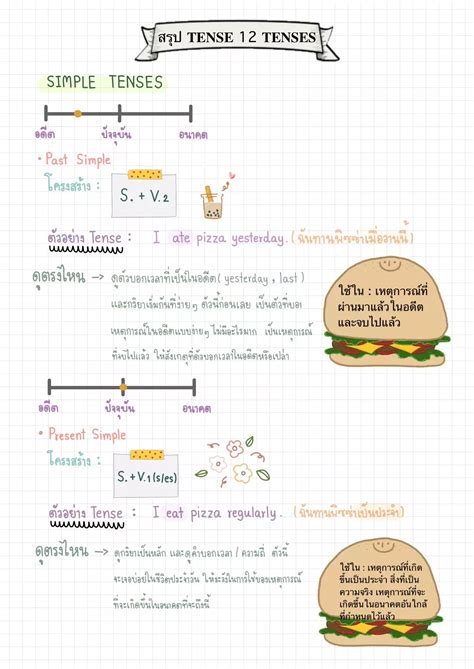 สรุป TENSE 12 TENSES
SIMPLE TENSES
อดีต ปัจจุบัน อนาคต
• Past Simple
โครงสร้าง :
S. + V.2
ตัวอย่าง Tense : I ate pizza yesterday. (ฉันทานพิซซ่าเมื่อวานนี้)
ดูตรงไหน → ดูตัวบอกเวลาที่เป็นในอดีต ( yesterday , last )
และกริยาเริ่มกันที่ง่ายๆ ตัวนี้ก่อนเลย เป็นตัวที่บอก
เหตุการณ์ในอดีตแบบง่ายๆ ไม่มีอะไรมาก เป็นเหตุการณ์
ที่จบไปแล้ว ให้สังเกตุที่ตัวบอกเวลาในอดีตหรือเปล่า
ใช้ใน : เหตุการณ์ที่
ผ่านมาแล้วในอดีต
และจบไปแล้ว
อดีต ปัจจุบัน อนาคต
• Present Simple
โครงสร้าง :
S. + V.1 (s/es)
ตัวอย่าง Tense : I eat pizza regularly. (ฉันทานพิซซ่าเป็นประจำ)
ดูตรงไหน → ดูกริยาเป็นหลัก และดูคำบอกเวลา / ความถี่ ตัวนี้
จะเจอบ่อยในชีวิตประจำวัน ให้ระวังในการใช้ของเหตุการณ์
ที่จะเกิดขึ้นในอนาคตที่จะถึงนี้
ใช้ใน : เหตุการณ์ที่เกิด
ขึ้นเป็นประจำ สิ่งที่เป็น
ความจริง เหตุการณ์ที่จะ
เกิดขึ้นในอนาคตอันใกล้
ที่กำหนดไว้แล้ว